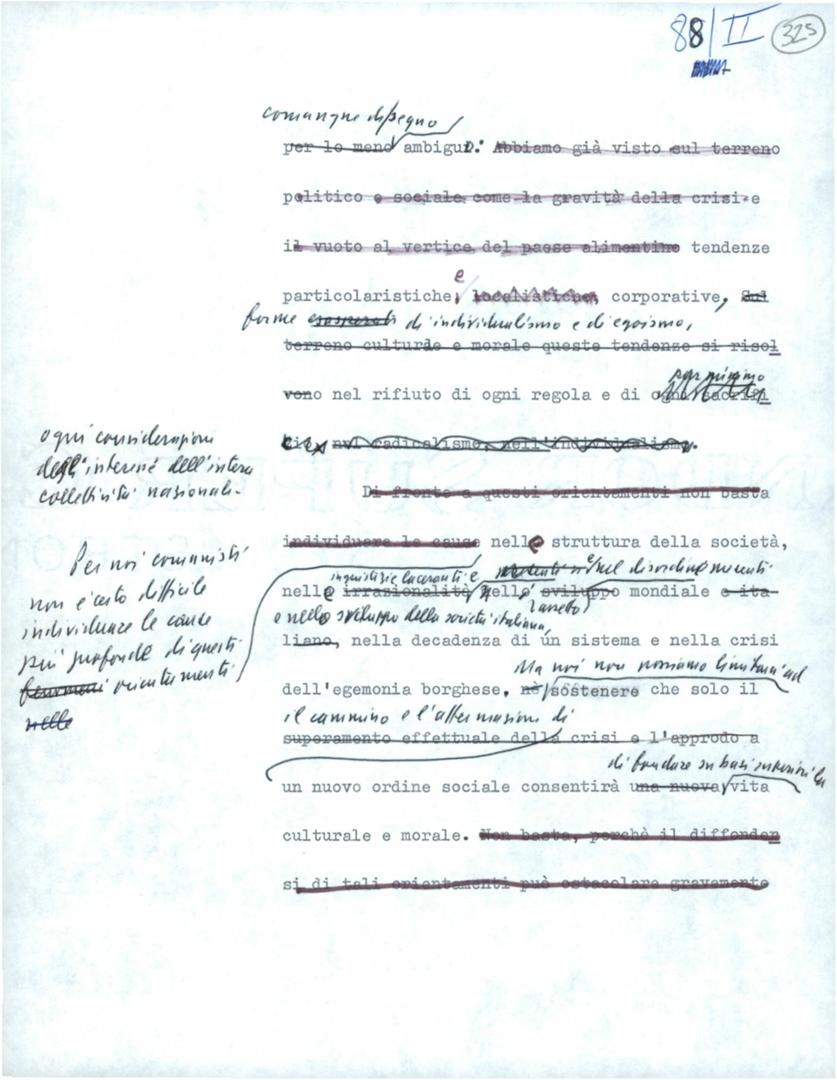 88/II 325
comunque di segno
per lo meno ambiguo. Abbiamo già visto sul terreno
politico e sociale come la gravità della crisi e
il vuoto al vertice del paese alimentino tendenze
e
particolaristiche, localistiche, corporative, Sul
forme di individualismo e di egoismo,
terreno culturale e morale queste tendenze si risol
per minimo
vono nel rifiuto di ogni regola e di ogni sacrifi
cio, nel radicalismo, nell'individualismo.
ogni considerazione
degli interessi dell'intera
collettività nazionale.
Di fronte a questi orientamenti non basta
individuere le cause nelle struttura della società,
Per noi comunisti
non è certo difficile
individuare le cause
più profonde di questi
fenomeni orientamenti
nelle
ingiustizie laceranti e nel disordine
nelle irrazionalità, nello sviluppo mondiale e ita-
assetto
e nello sviluppo della società italiana,
liano, nella decadenza di un sistema e nella crisi
Ma noi non possiamo limitarci ad
dell'egemonia borghese, nè sostenere che solo il
il cammino e l'affermazione di
superamento effettuale della crisi e l'approdo a
di fondare su basi
un nuovo ordine sociale consentirà una nuova vita
culturale e morale. Non basta, perchè il diffonder
si di tali orientamenti può ostacolare gravemente